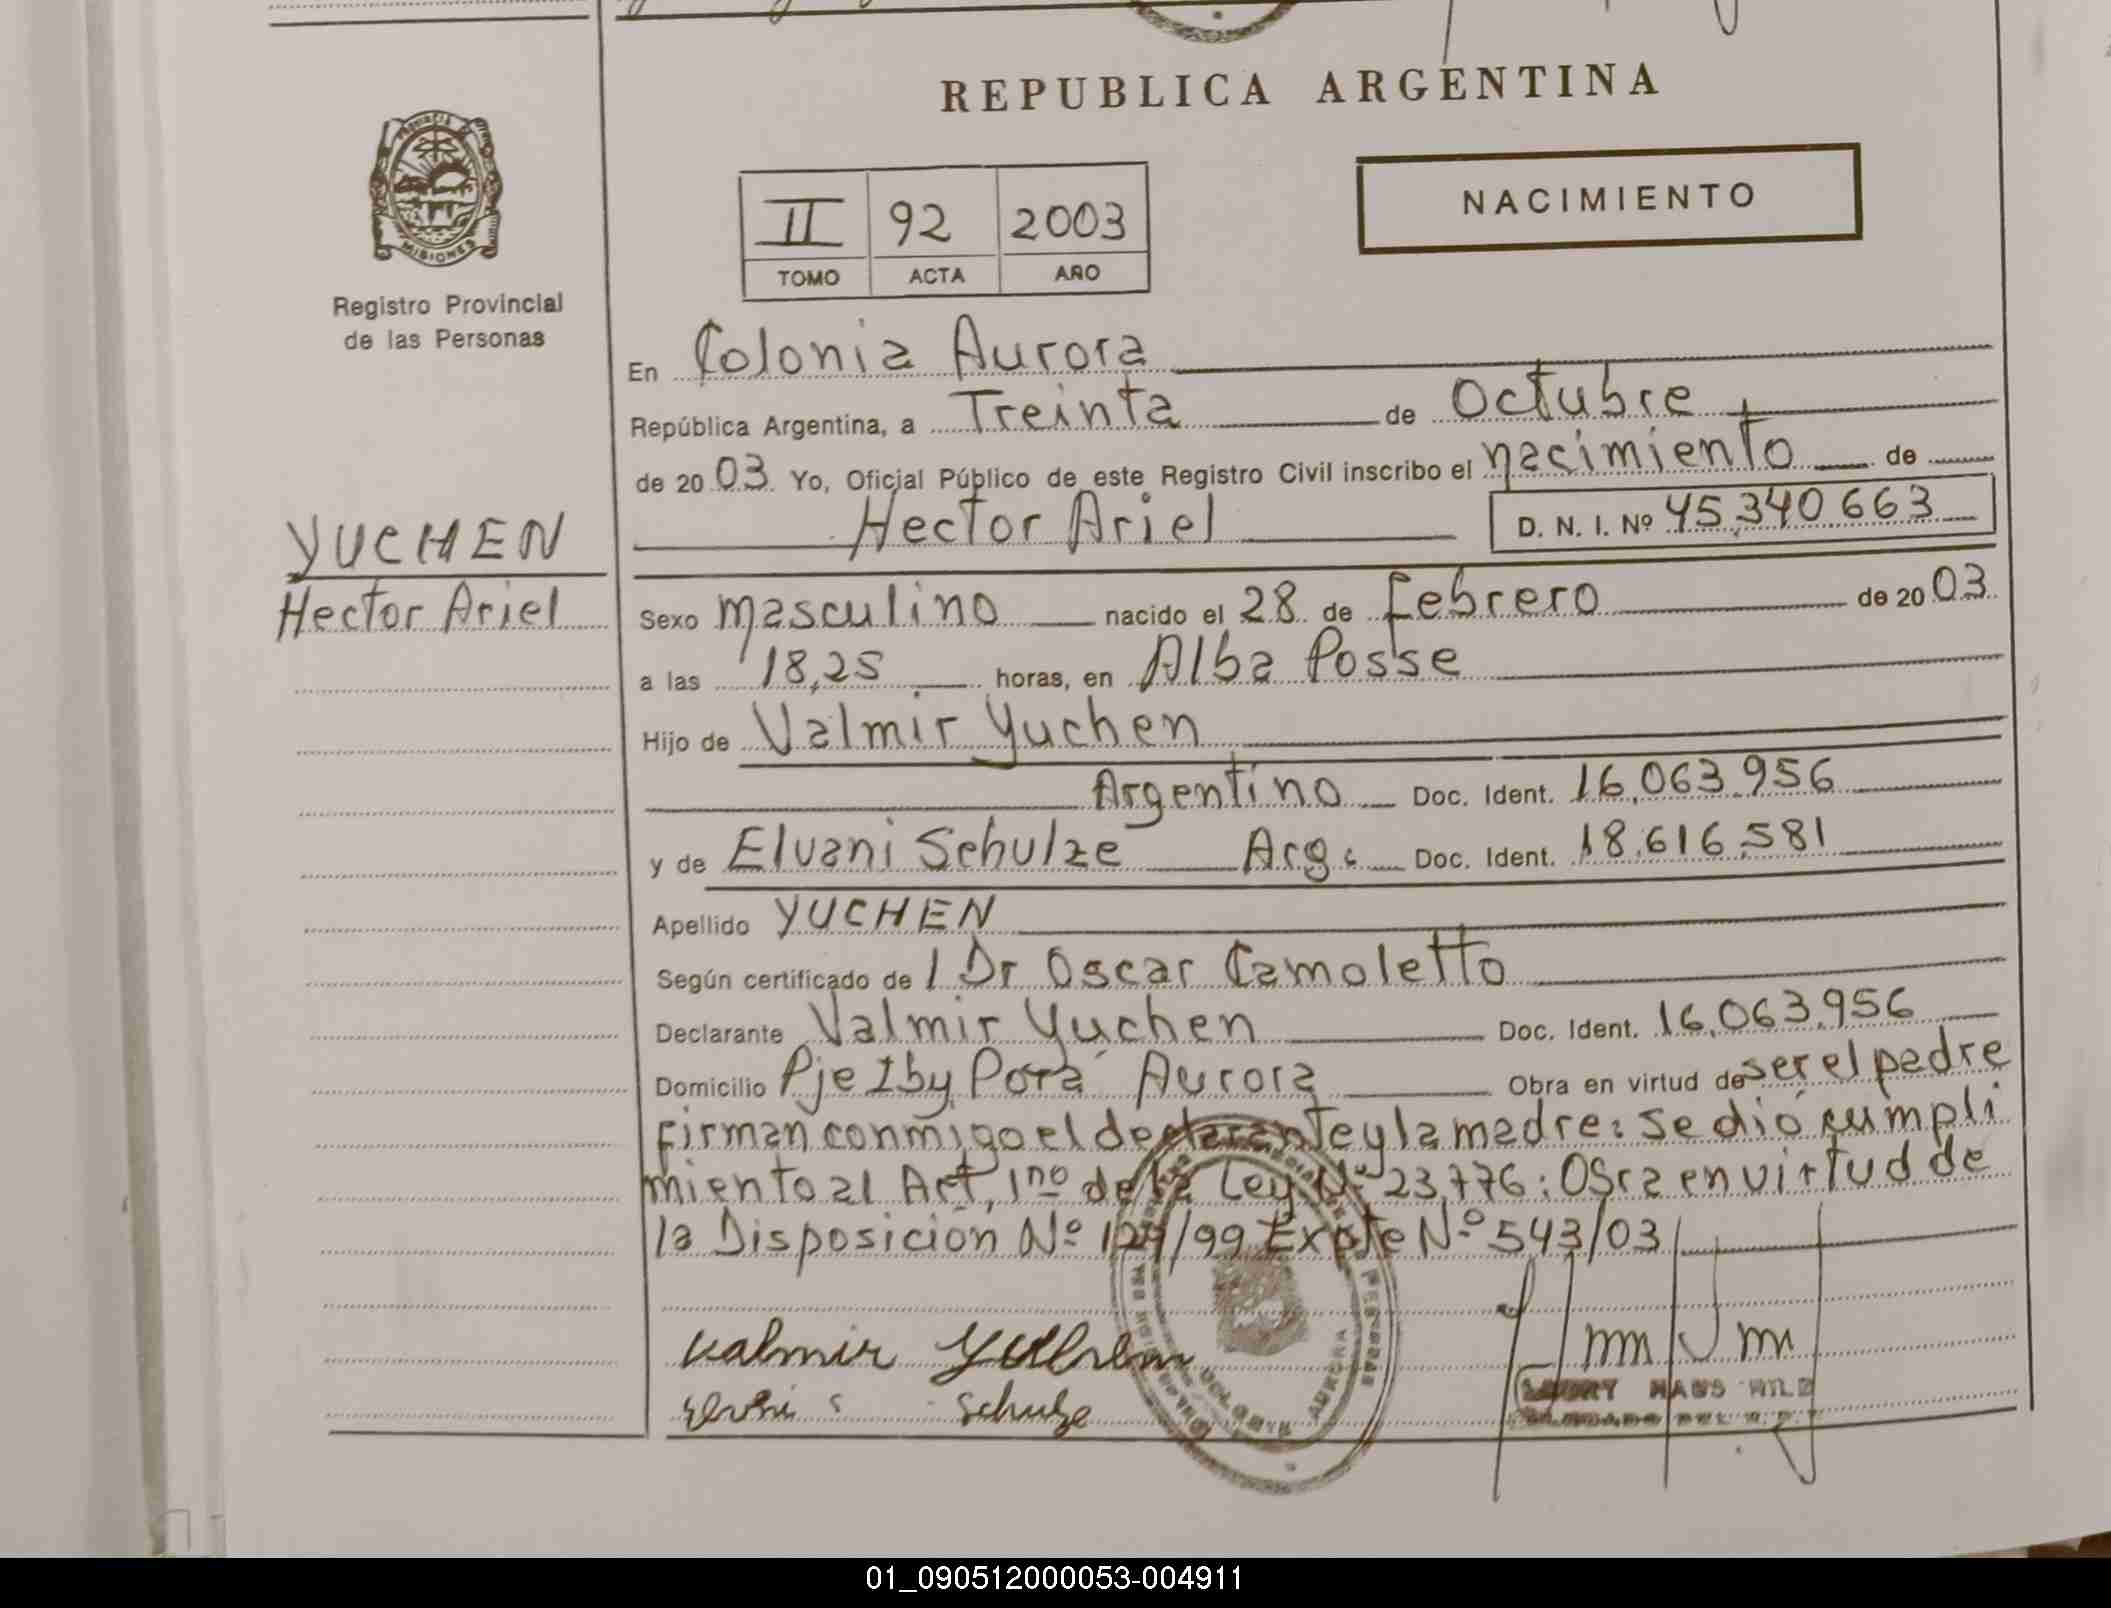 REPUBLICA ARGENTINA
NACIMIENTO
II 92 2003
TOMO ACTA AÑO
PROVINCIA DE
MISIONES
Registro Provincial
de las Personas
En Colonia Aurora
República Argentina, a Treinta de Octubre
de 2003 Yo, Oficial Público de este Registro Civil inscribo el nacimiento de
Hector Ariel D. N. I. Nº 45.340.663
YUCHEN
Hector Ariel
Sexo masculino nacido el 28 de febrero de 2003
a las 18,25 horas, en Alba Posse
Hijo de Valmir Yuchen
Argentino Doc. Ident. 16.063.956
y de Elvani Schulze Arg. Doc. Ident. 18.616.581
Apellido YUCHEN
Según certificado de l Dr Oscar Camoletto
Declarante Valmir Yuchen Doc. Ident. 16.063.956
Domicilio Pje Iby Porá Aurora Obra en virtud de ser el padre
firman conmigo el declarante y la madre: se dió cumpli
miento al Art. 1no de la Ley Nº 23.776: Obra en virtud de
la Disposición Nº 129/99 Expte Nº 543/03
Valmir Yuchen
Schulze
AURORA
01_090512000053-004911